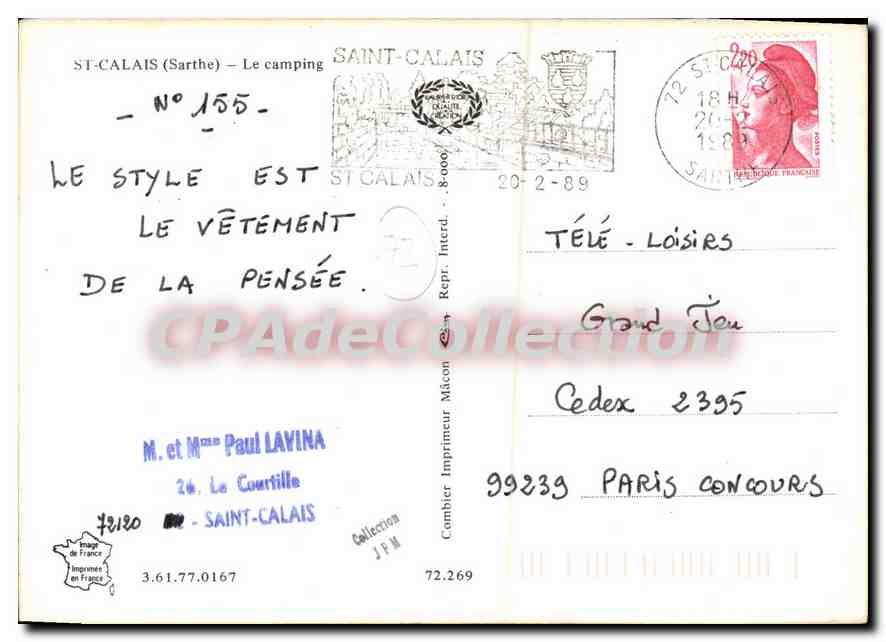 ST-CALAIS (Sarthe) – Le camping
- N° 155 -
LE STYLE EST
LE VÊTEMENT
DE LA PENSÉE.
72
M. et Mme Paul LAVINA
26, La Courtille
72120 - SAINT-CALAIS
Image
de France
Imprimée
en France
3.61.77.0167
72.269
Collection
JFM
Combier Imprimeur Mâcon Cim Repr. Interd. - 8-000
SAINT-CALAIS
QUALITÉ
CRÉATION
ST CALAIS
20-2-89
72 ST CALAIS
18H
20-2
1989
SARTHE
2,20
POSTES
REPUBLIQUE FRANÇAISE
TÉLÉ-LOISIRS
Grand Jeu
Cedex 2395
99239 PARIS CONCOURS
CPAdeCollection.com